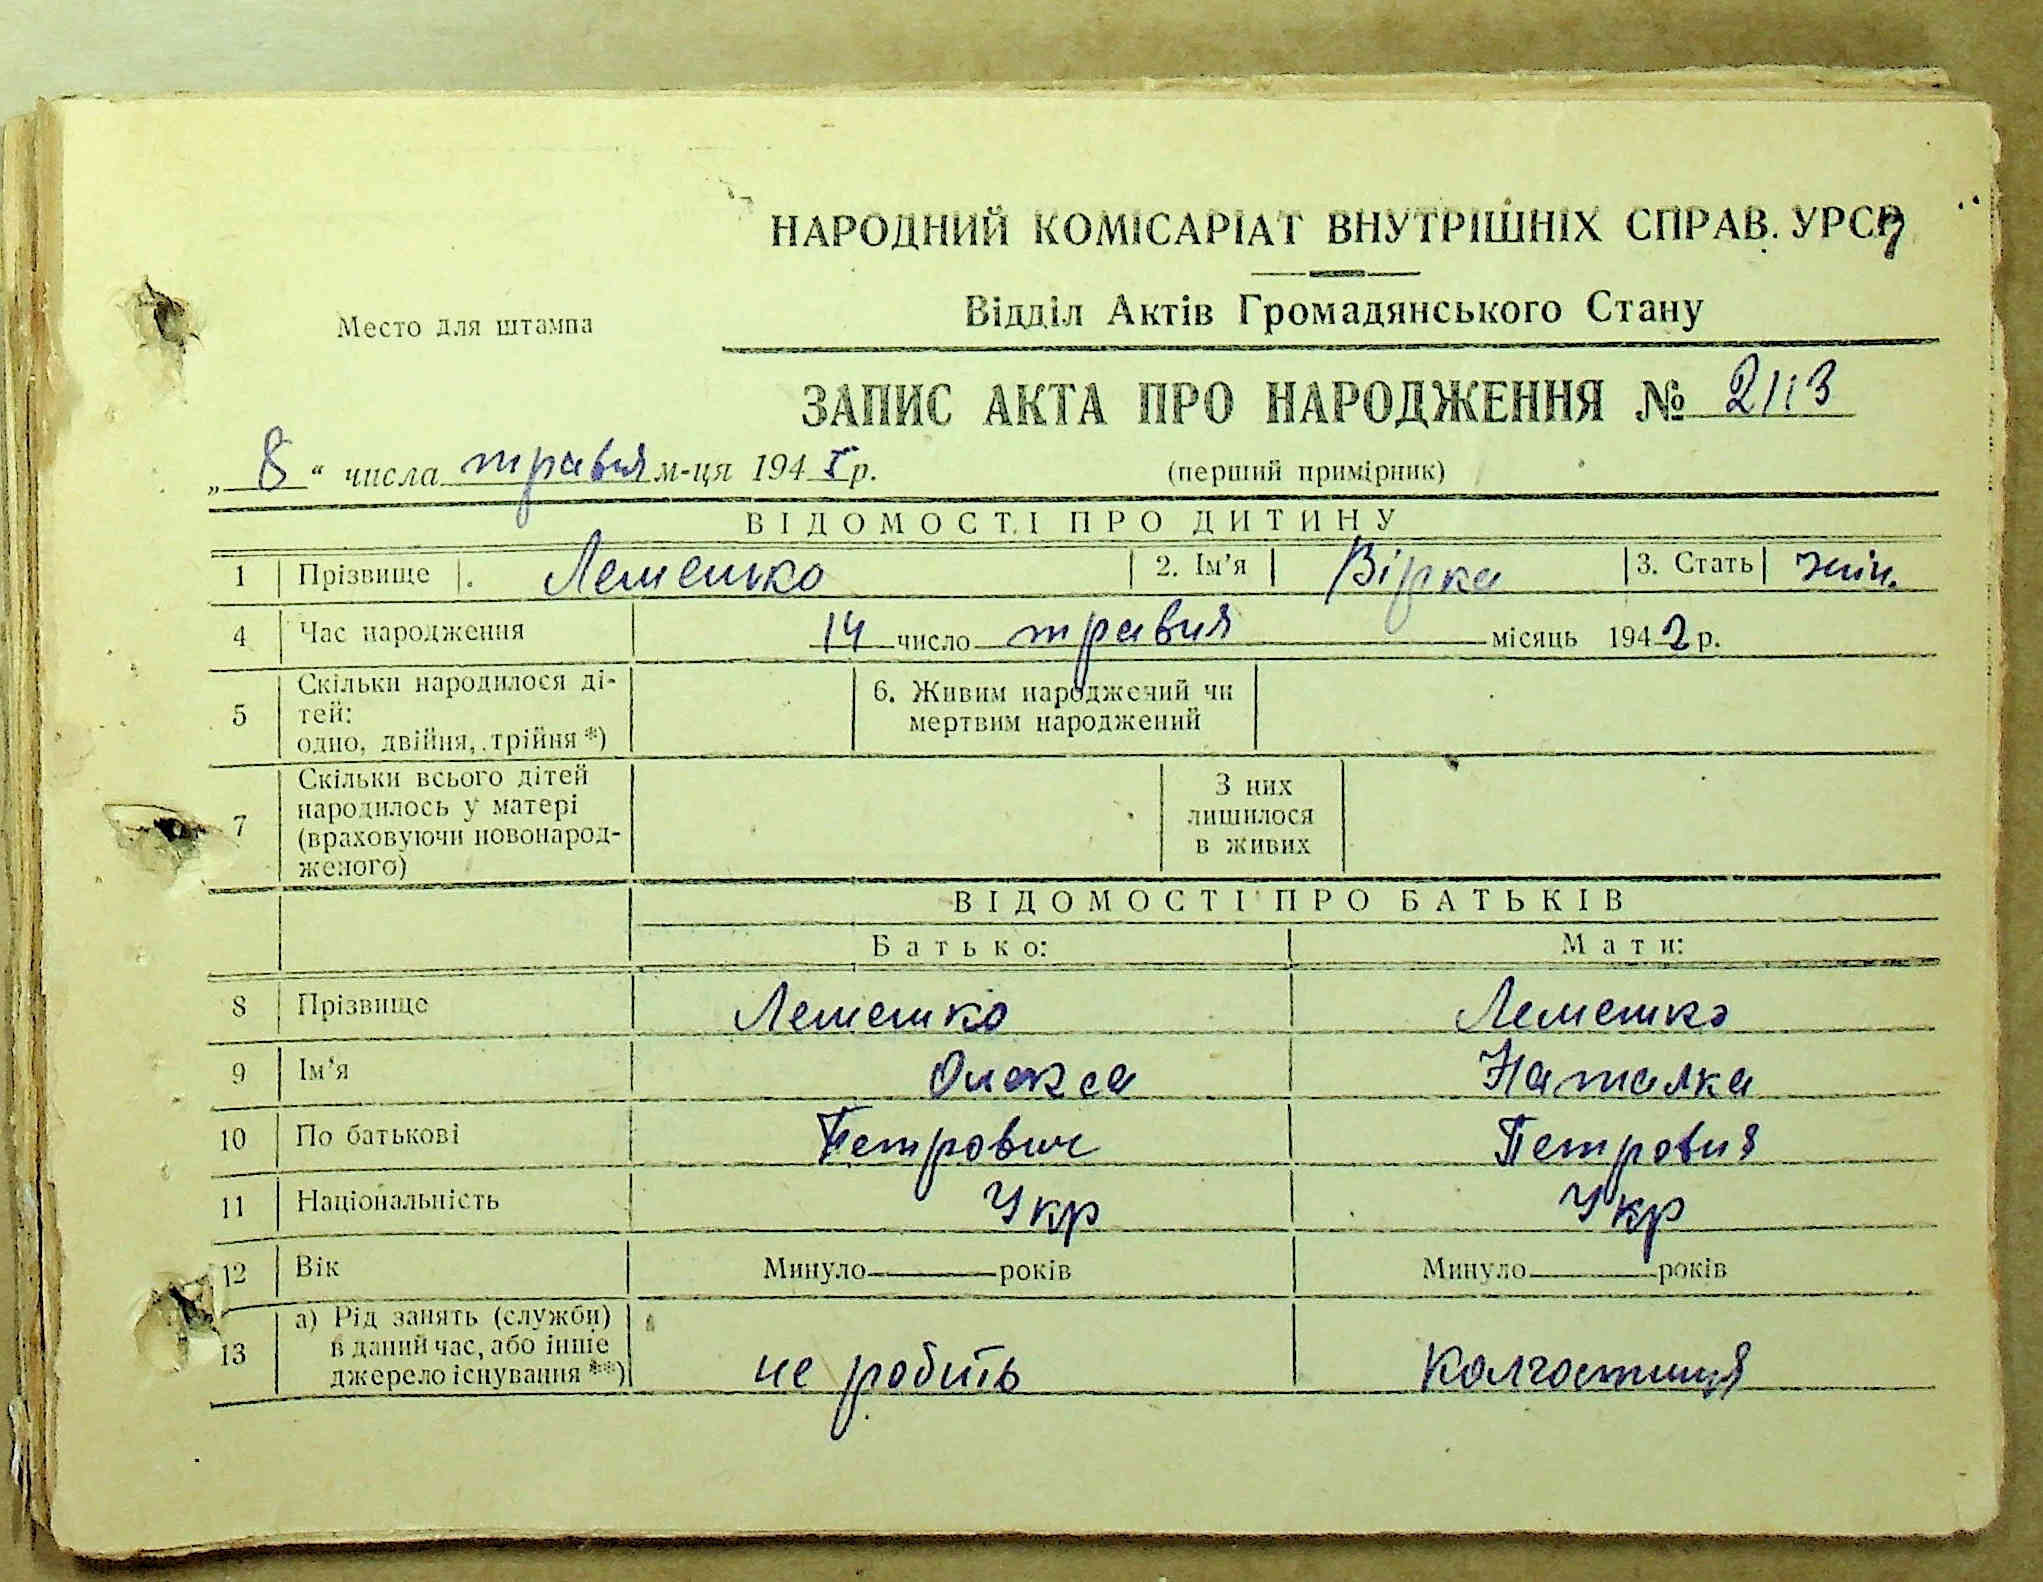 НАРОДНИЙ КОМІСАРІАТ ВНУТРІШНІХ СПРАВ. УРСР
Место для штампа
Відділ Актів Громадянського Стану
ЗАПИС АКТА ПРО НАРОДЖЕННЯ № 2113
„ 8 “ числа травня м-ця 194 І р. (перший примірник)
ВІДОМОСТІ ПРО ДИТИНУ
1 Прізвище Лемешко 2. Ім'я Вірка 3. Стать жін.
4 Час народження 14 число травня місяць 1942 р.
5 Скільки народилося ді-
тей:
одно, двійня, трійня *)
6. Живим народжений чи
мертвим народжений
7 Скільки всього дітей
народилось у матері
(враховуючи новонарод-
женого)
З них
лишилося
в живих
ВІДОМОСТІ ПРО БАТЬКІВ
Батько: Мати:
8 Прізвище Лемешко Лемешко
9 Ім'я Олекса Наталка
10 По батькові Петрович Петровна
11 Національність Укр Укр
12 Вік Минуло років Минуло років
13 а) Рід занять (служби)
в даний час, або інше
джерело існування **)
не робить колгоспниця